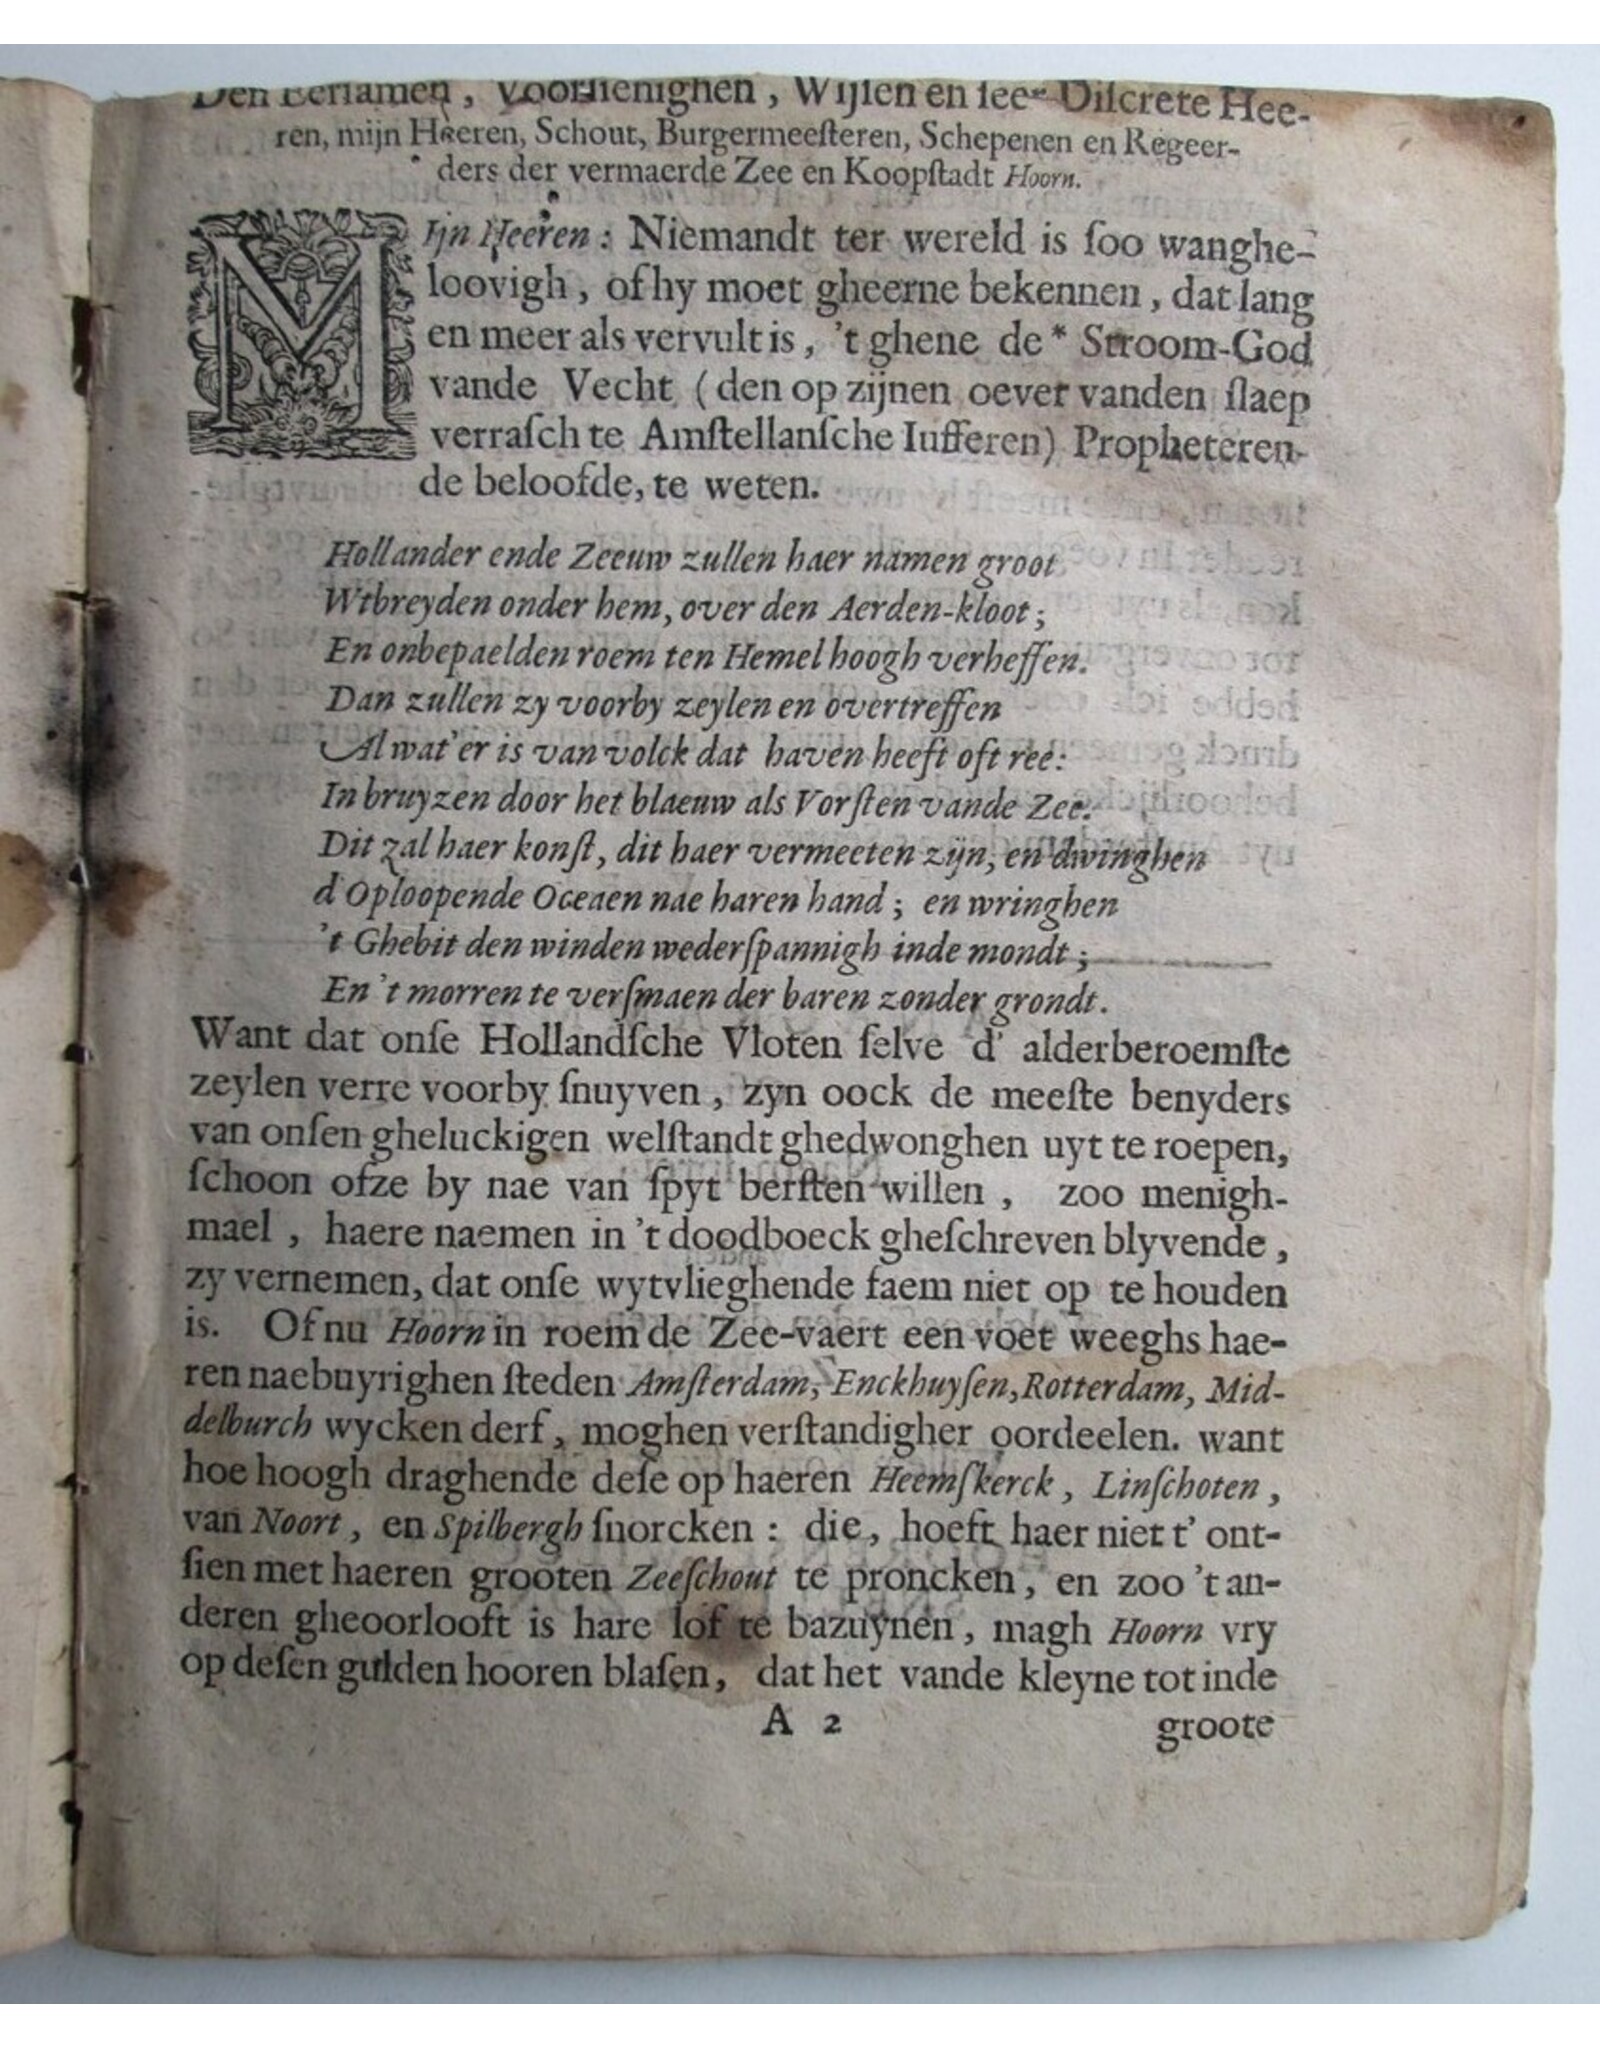 Den Eerſamen, Voorſienighen, Wijſen en ſeer Diſcrete Hee-
ren, mijn Heeren, Schout, Burgermeeſteren, Schepenen en Regeer-
ders der vermaerde Zee en Koopſtadt Hoorn.
MIjn Heeren: Niemandt ter wereld is ſoo wanghe-
loovigh, of hy moet gheerne bekennen, dat lang
en meer als vervult is, 't ghene de * Stroom-God
vande Vecht (den op zijnen oever vanden ſlaep
verraſchte Amſtellanſche Iufferen) Propheteren-
de beloofde, te weten.
Hollander ende Zeeuw zullen haer namen groot
Wtbreyden onder hem, over den Aerden-kloot;
En onbepaelden roem ten Hemel hoogh verheffen.
Dan zullen zy voorby zeylen en overtreffen
Al wat'er is van volck dat haven heeft oft ree:
In bruyzen door het blaeuw als Vorſten vande Zee.
Dit zal haer konſt, dit haer vermeeten zijn, en dwinghen
d'Oploopende Oceaen nae haren hand; en wringhen
't Ghebit den winden wederſpannigh inde mondt;
En 't morren te verſmaen der baren zonder grondt.
Want dat onſe Hollandſche Vloten ſelve d' alderberoemſte
zeylen verre voorby ſnuyven, zyn oock de meeſte benyders
van onſen gheluckigen welſtandt ghedwonghen uyt te roepen,
ſchoon ofze by nae van ſpyt berſten willen, zoo menigh-
mael, haere naemen in 't doodboeck gheſchreven blyvende,
zy vernemen, dat onſe wytvlieghende faem niet op te houden
is. Of nu Hoorn in roem de Zee-vaert een voet weeghs hae-
ren naebuyrighen ſteden Amſterdam, Enckhuyſen, Rotterdam, Mid-
delburch wycken derf, moghen verſtandigher oordeelen. want
hoe hoogh draghende deſe op haeren Heemſkerck, Linſchoten,
van Noort, en Spilbergh ſnorcken: die, hoeft haer niet t' ont-
ſien met haeren grooten Zeeſchout te proncken, en zoo 't an-
deren gheoorlooft is hare lof te bazuynen, magh Hoorn vry
op deſen gulden hooren blaſen, dat het vande kleyne tot inde
A 2 groote